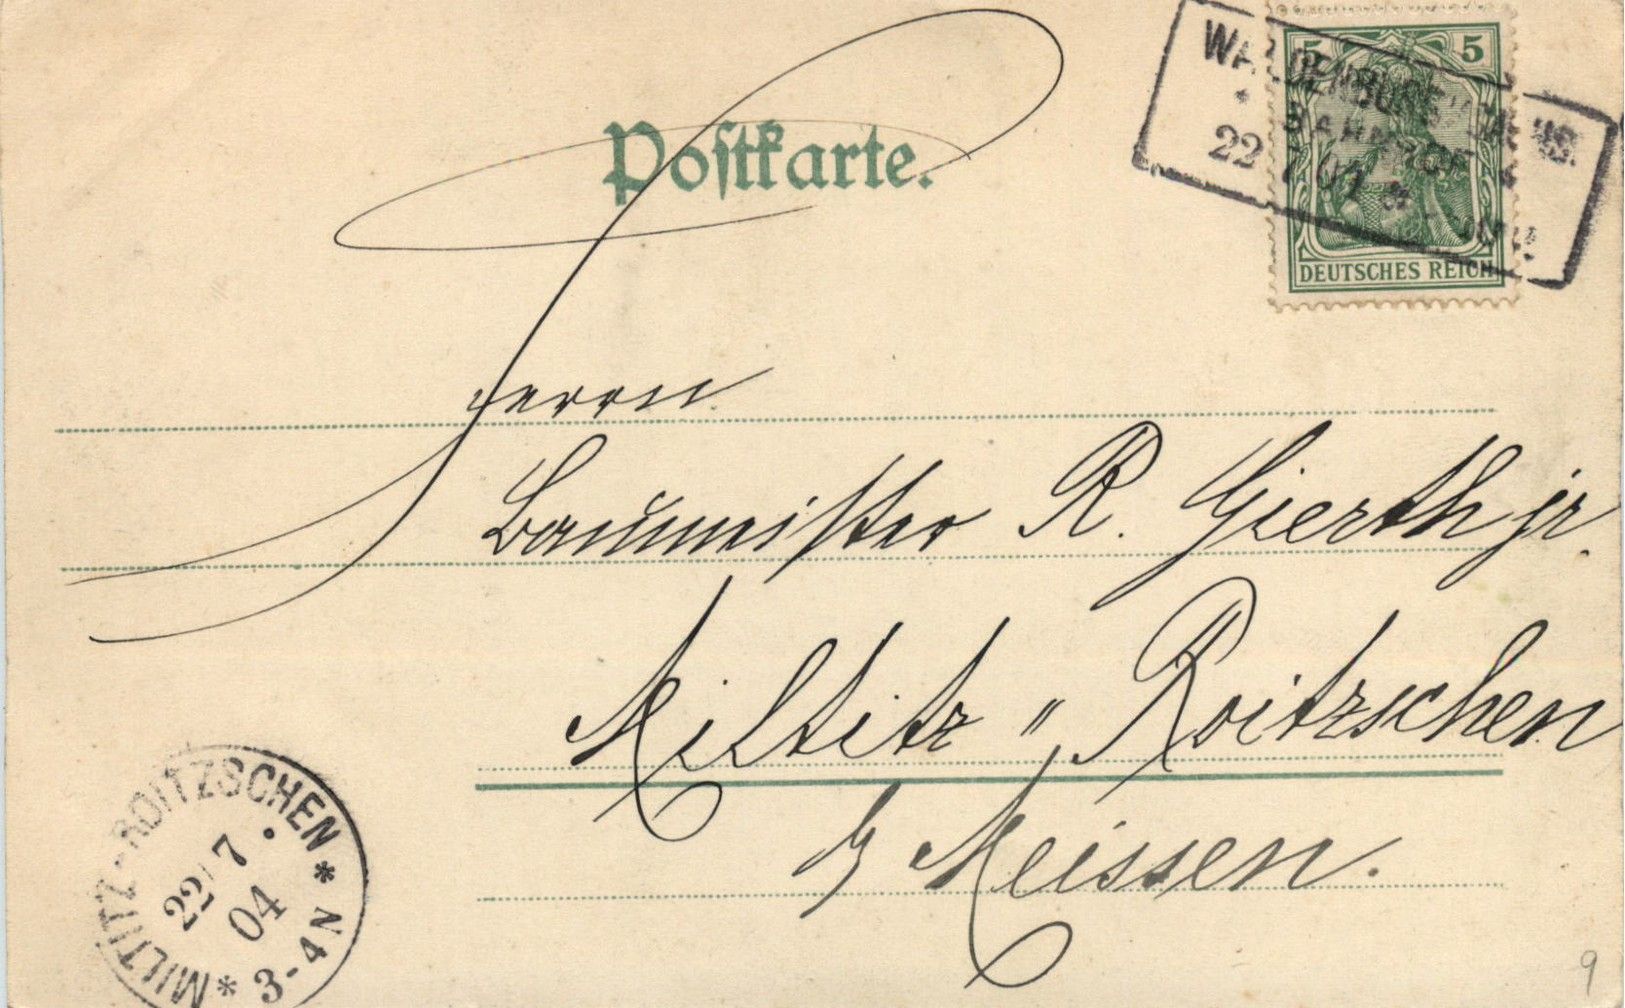 Postkarte.
5 5
DEUTSCHES REICH
22
Herrn
Baumeister R. Gierth jr.
Miltitz " Roitzschen
b/ Meissen.
* MILTITZ-ROITZSCHEN *
22/7
04
3-4N
9